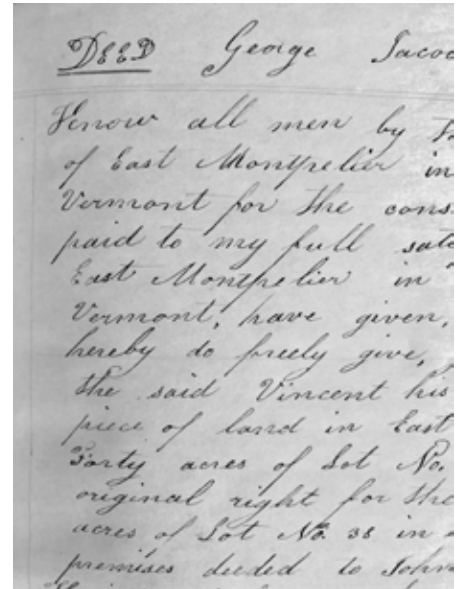 DEED George Jacob
Know all men by th
of East Montpelier in
Vermont for the cons
paid to my full sate
East Montpelier in
Vermont, have given,
hereby do freely give,
the said Vincent his
piece of land in East
Forty acres of Lot No.
original right for the
acres of Lot No. 38 in
premises deeded to John